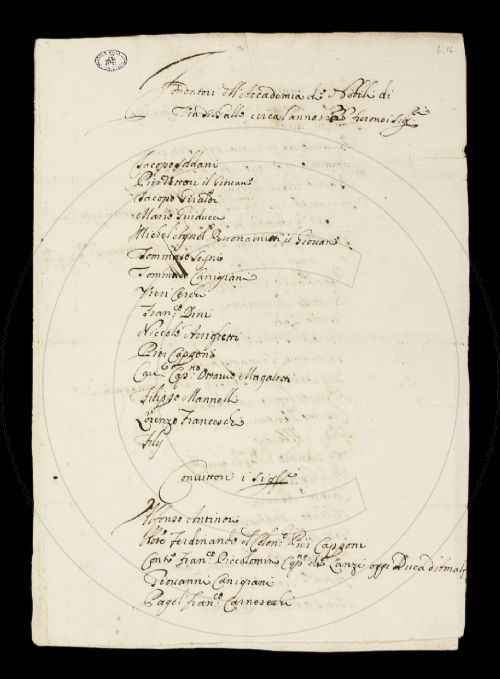 2. 14
Fondatori dell Accademia de Nobili di
circa l'anno furono i Sig.ri
Jacopo Soldani
Pier Vettori il Giovane
Jacopo Giraldi
Mario Guiducci
Michel Agnol Buonarruoti il Giovane
Tommaso Segni
Tommaso Canigiani
Vieri Cerchi
Fran.co Dini
Niccolò Arrighetti
Pier Capponi
Cav.re Cap.no Ottavio Magalotti
Filippo Mannelli
Lorenzo Franceschi
Convittori i Sig.ri
Alfonso Antinori
Ferdinando del Sen.re Pier Capponi
Conte Fran.co Piccolomini Cap.no de Lanzi oggi Duca d'Amalfi
Giovanni Canigiani
Pagol Fran.co Carnesechi